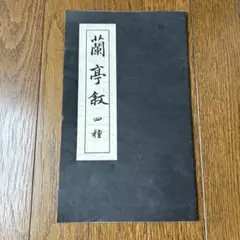 蘭亭敘 四種